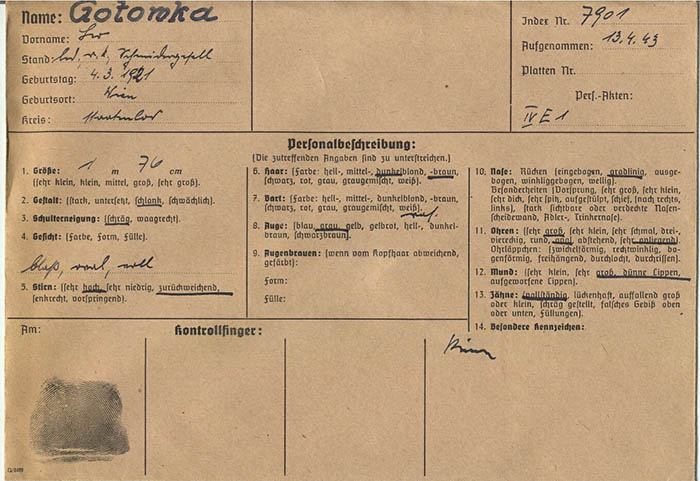 Name: Gotowka
Vorname: Leo
Stand: led, r.k, Schneidergesell
Geburtstag: 4.3.1921
Geburtsort: Wien
Kreis: staatenlos
Index Nr. 7901
Aufgenommen: 13.4.43
Platten Nr.
Pers.-Akten:
IV E 1
Personalbeschreibung:
(Die zutreffenden Angaben sind zu unterstreichen.)
1. Größe: 1 m 76 cm
(sehr klein, klein, mittel, groß, sehr groß).
2. Gestalt: (stark, untersetzt, schlank, schwächlich).
3. Schulterneigung: (schräg, waagrecht).
4. Gesicht: (Farbe, Form, Fülle).
blaß, oval, voll
5. Stirn: (sehr hoch, sehr niedrig, zurückweichend,
senkrecht, vorspringend).
6. Haar: (Farbe: hell-, mittel-, dunkelblond, -braun,
schwarz, rot, grau, graugemischt, weiß).
7. Bart: (Farbe: hell-, mittel-, dunkelblond, -braun,
schwarz, rot, grau, graugemischt, weiß).
8. Auge: (blau, grau, gelb, gelbrot, hell-, dunkel-
braun, schwarzbraun).
9. Augenbrauen: (wenn vom Kopfhaar abweichend,
gefärbt):
Form:
Fülle:
10. Nase: Rücken (eingebogen, gradlinig, ausge-
bogen, winkliggebogen, wellig).
Besonderheiten (Vorsprung, sehr groß, sehr klein,
sehr dick, sehr spitz, aufgestülpt, schief, nach rechts,
links), stark sichtbare oder verdeckte Nasen-
scheidewand, Adler-, Trinkernase).
11. Ohren: (sehr groß, sehr klein, sehr schmal, drei-,
viereckig, rund, oval, abstehend, sehr anliegend)
Ohrläppchen: (zwickelförmig, rechtwinklig, bo-
genförmig, freihängend, durchlocht, durchrissen).
12. Mund: (sehr klein, sehr groß, dünne Lippen,
aufgeworfene Lippen).
13. Zähne: (vollständig, lückenhaft, auffallend groß
oder klein, schräg gestellt, falsches Gebiß oben
oder unten, Füllungen).
14. Besondere Kennzeichen:
keine
Am:
Kontrollfinger: